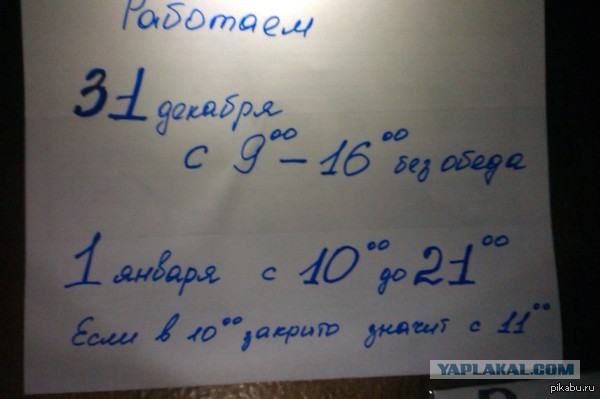 Работаем
31 декабря
с 9⁰⁰ – 16⁰⁰ без обеда
1 января с 10⁰⁰ до 21⁰⁰
Если в 10⁰⁰ закрито значит с 11⁰⁰
YAPLAKAL.COM
pikabu.ru